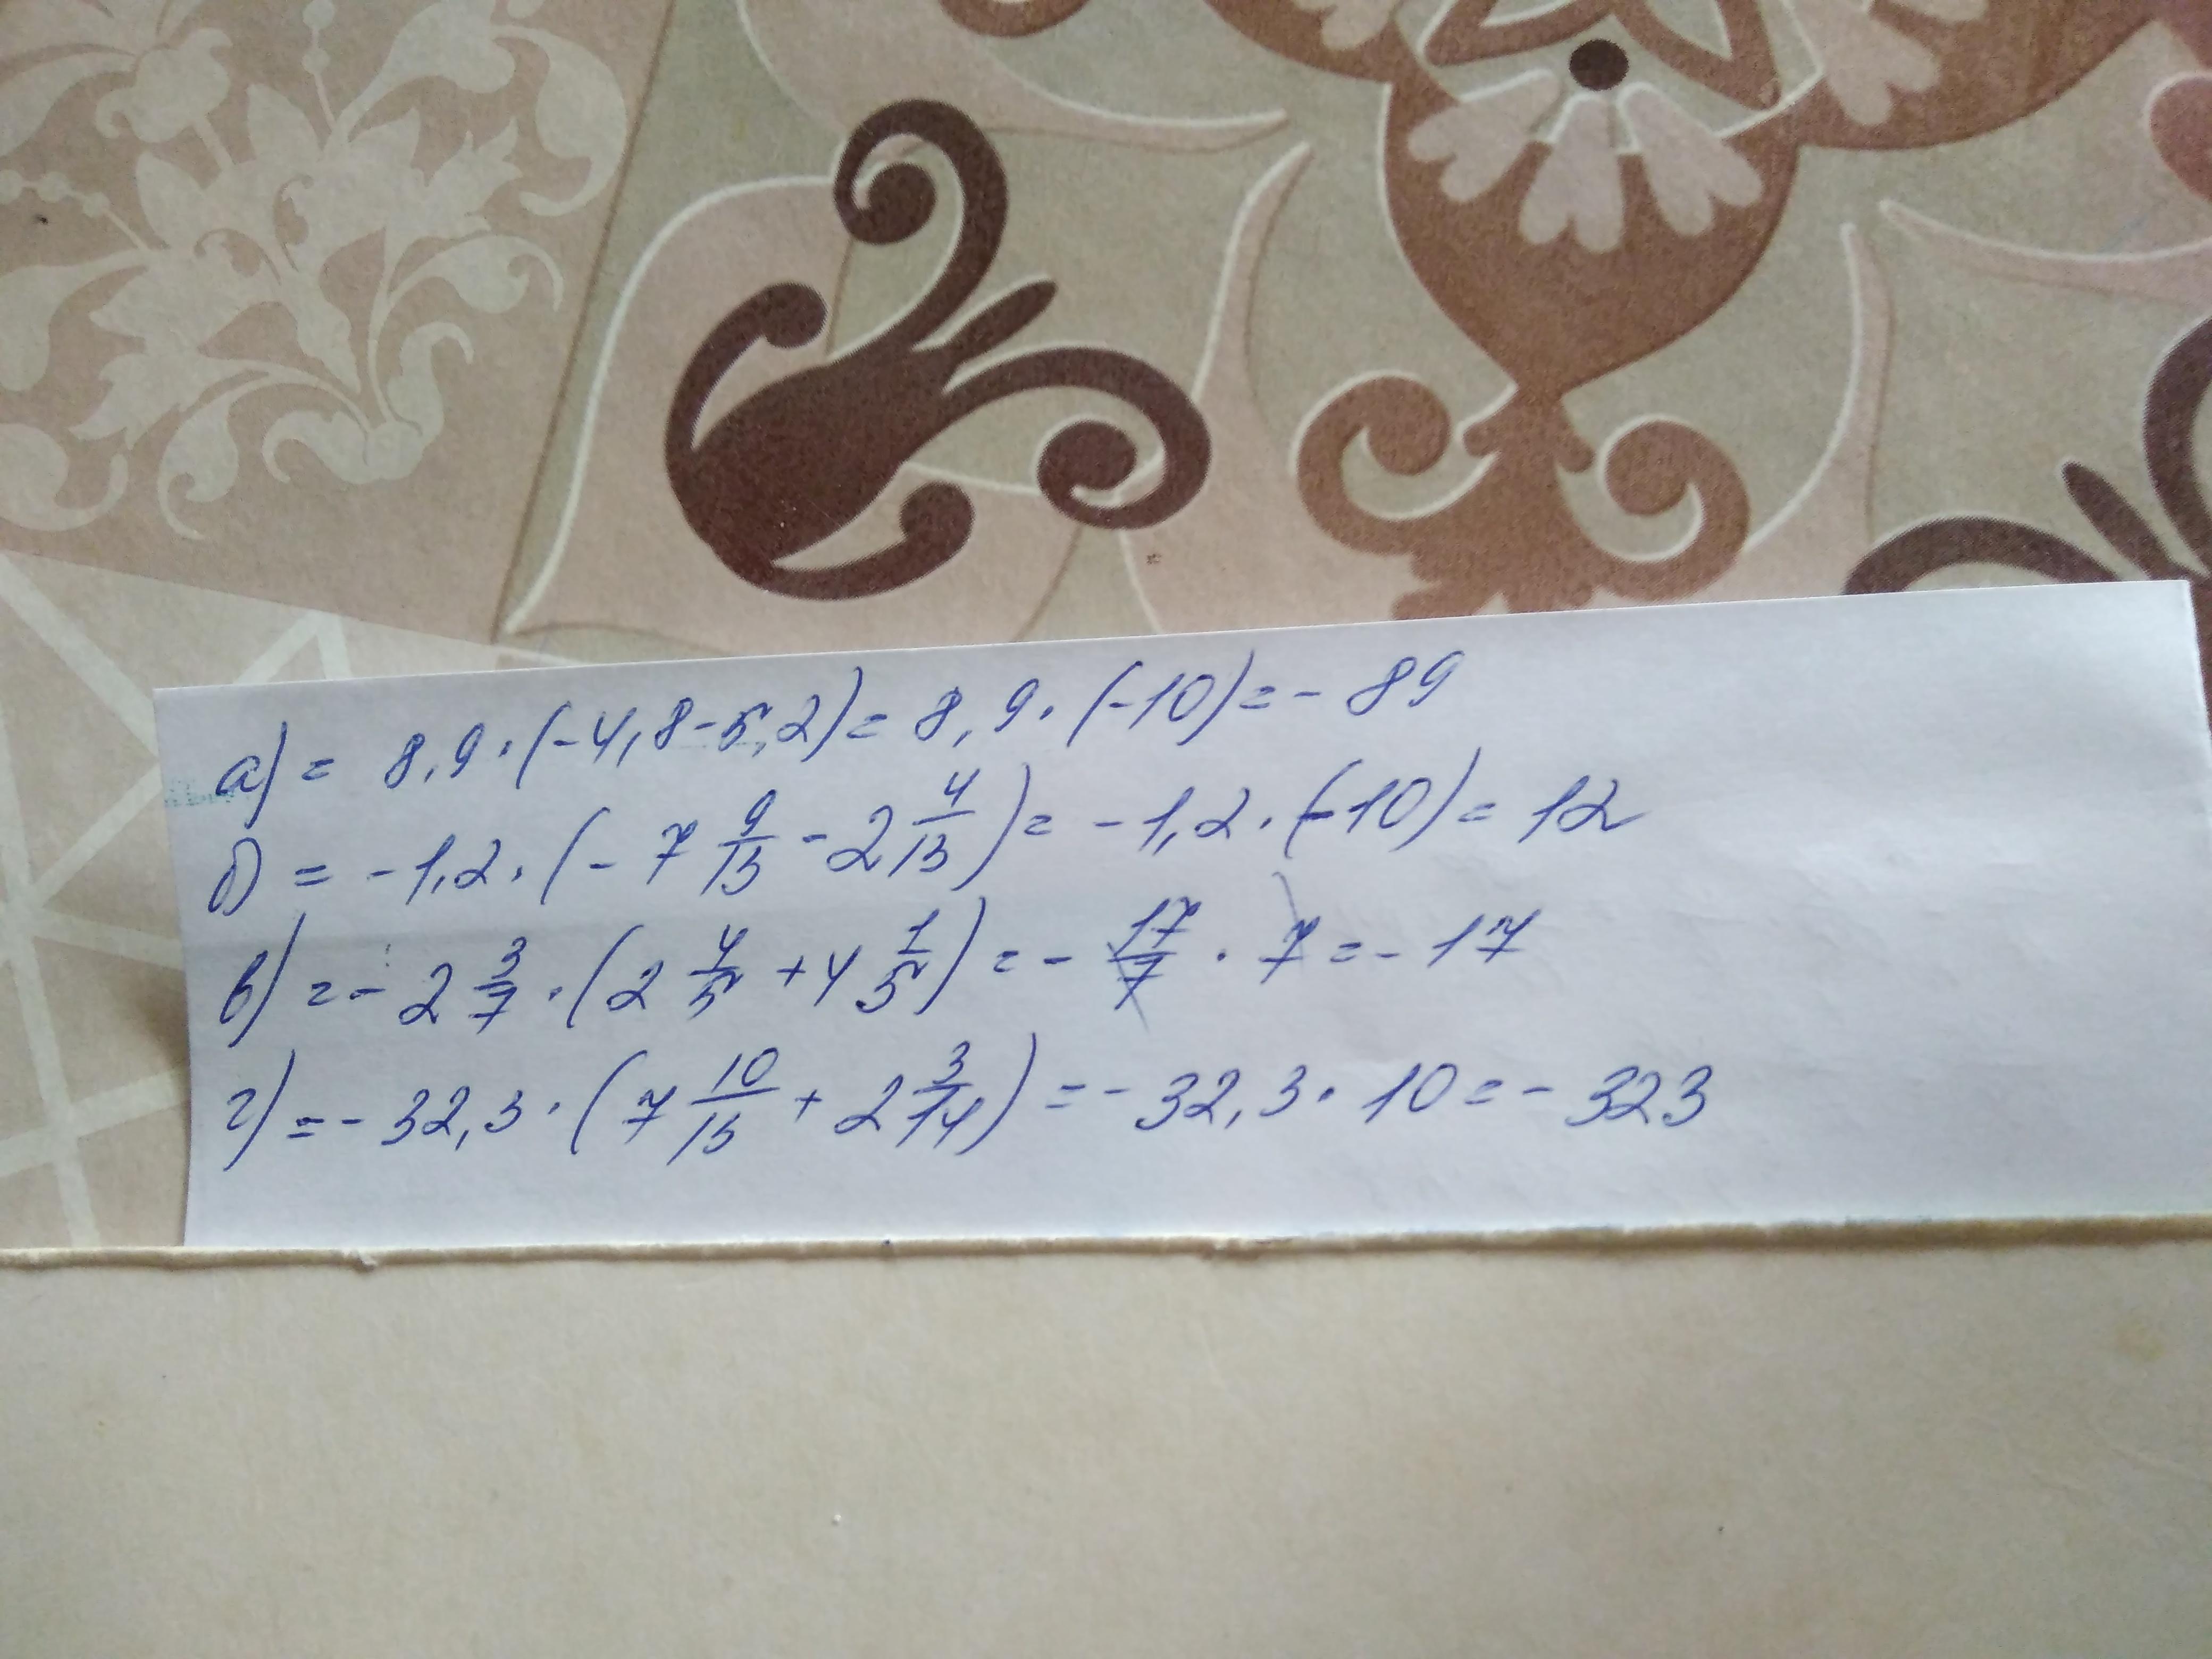 а) = 8,9 · (-4,8-5,2) = 8,9 · (-10) = - 89
б) = -1,2 · (- 7 9/13 - 2 4/13) = -1,2 · (-10) = 12
в) = - 2 3/7 · (2 4/5 + 4 1/5) = - 17/7 · 7 = - 17
г) = - 32,3 · (7 10/13 + 2 3/14) = - 32,3 · 10 = - 323